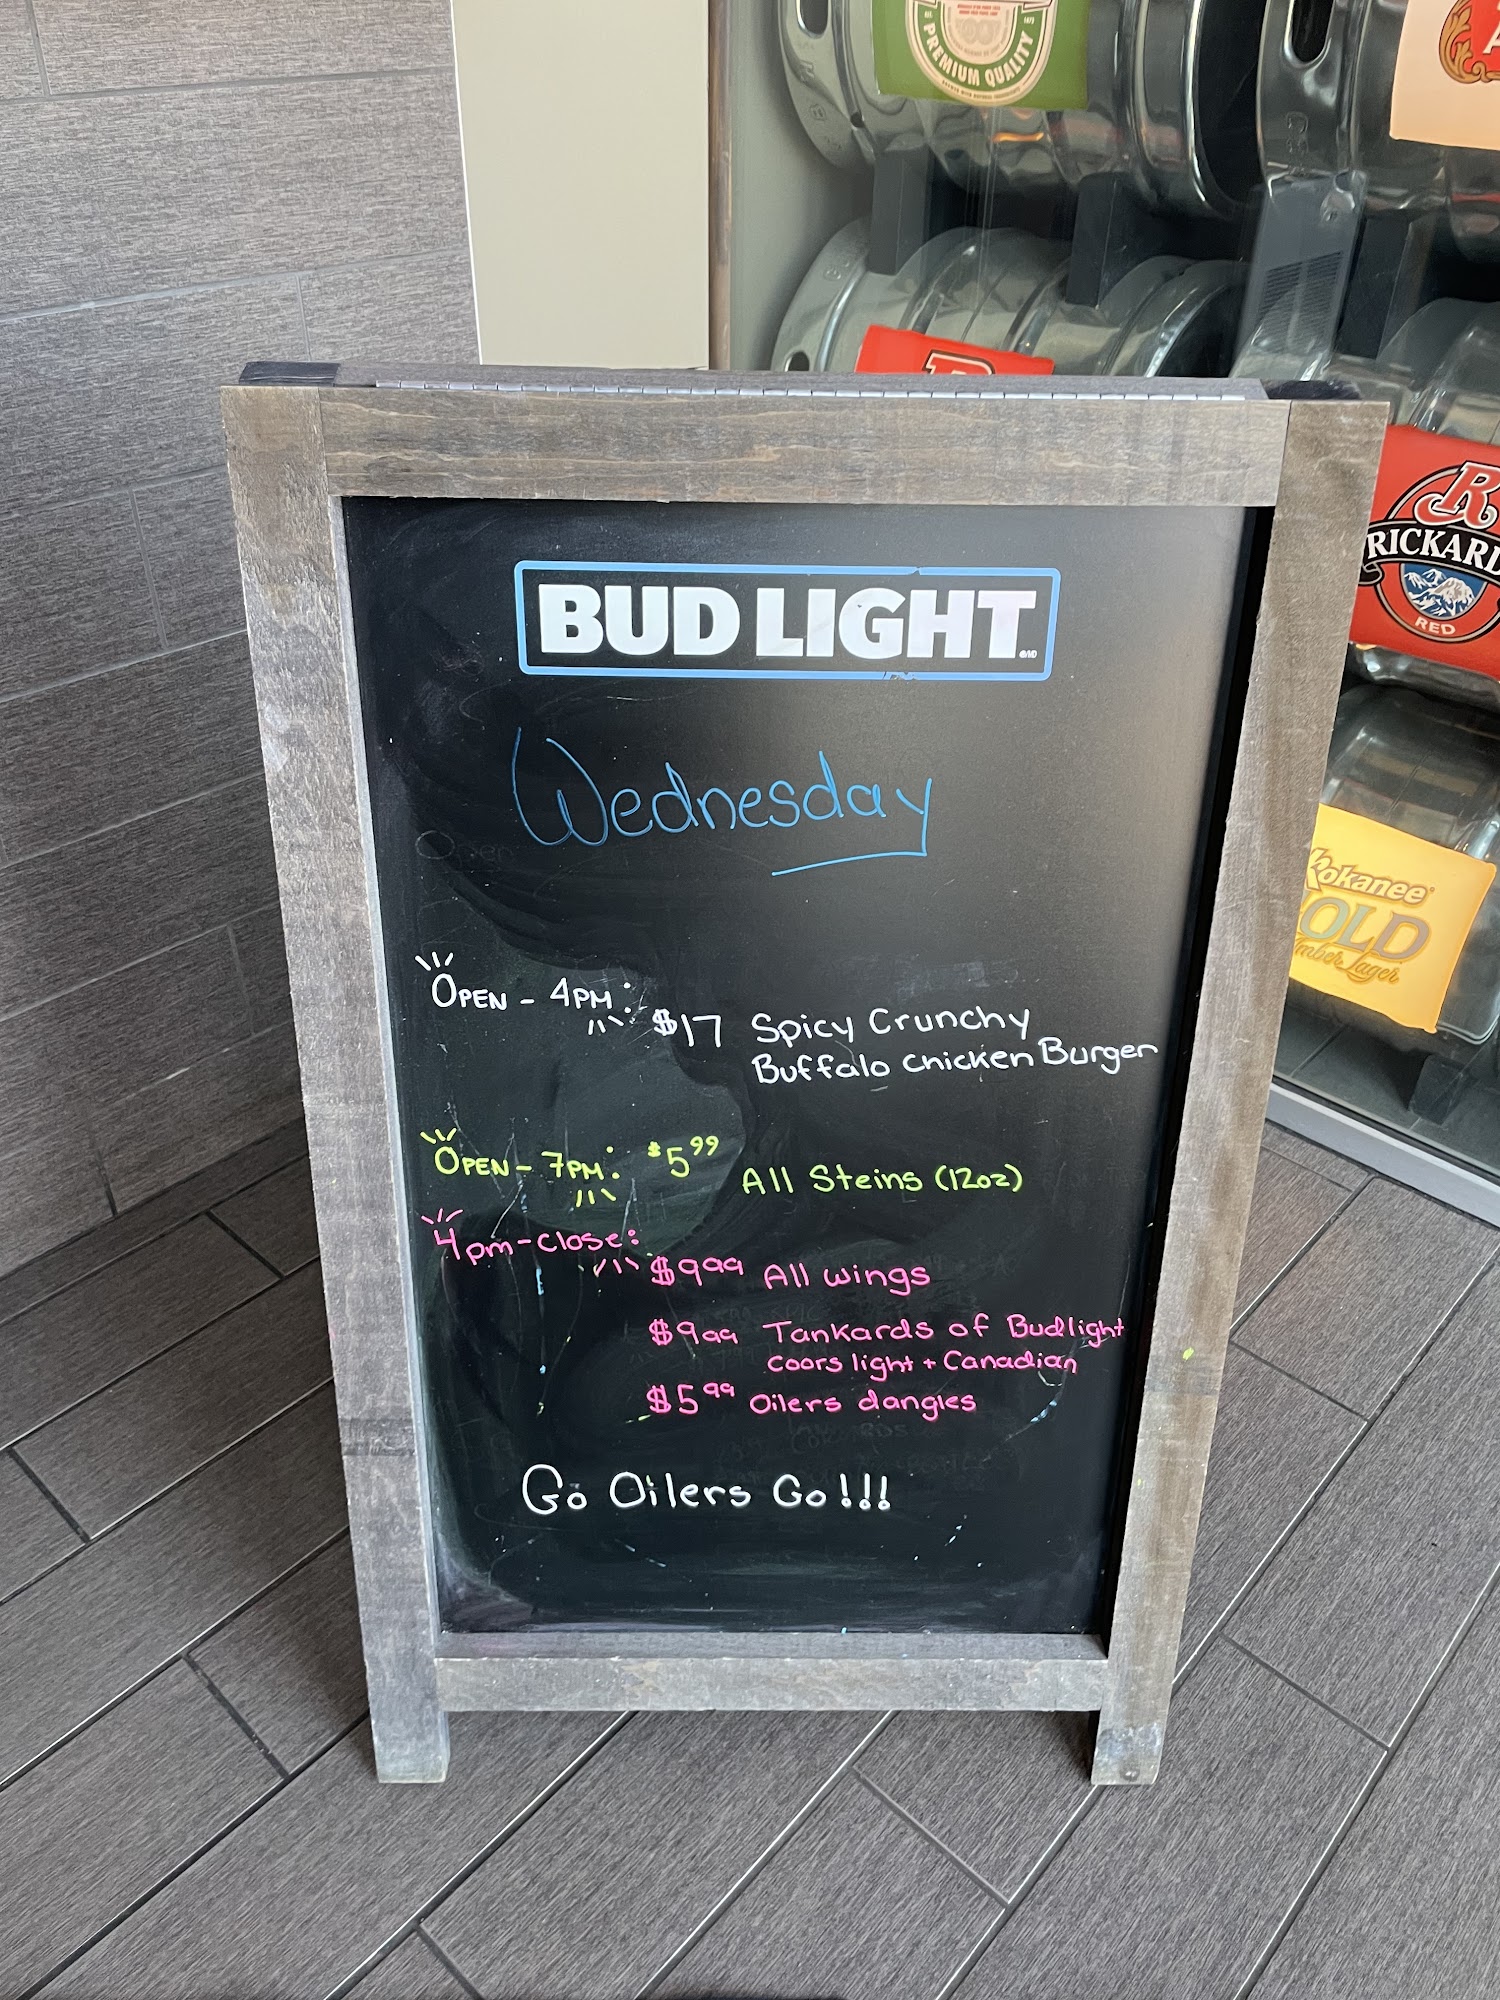 PREMIUM QUALITY
BUD LIGHT
Wednesday
OPEN - 4PM:
$17 Spicy Crunchy
Buffalo Chicken Burger
OPEN - 7PM: $5.99 All Steins (12oz)
4pm-close:
$9.99 All wings
$9.99 Tankards of Budlight
Coors light + Canadian
$5.99 Oilers dangles
Go Oilers Go!!!
RICKARD
RED
Kokanee
GOLD
Amber Lager